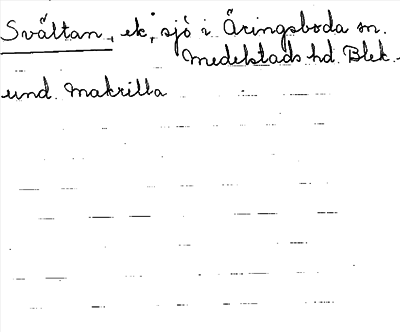 Svältan, ek, sjö i Äringsboda sn.
Medelstads hd. Blek.
und. Makrilla